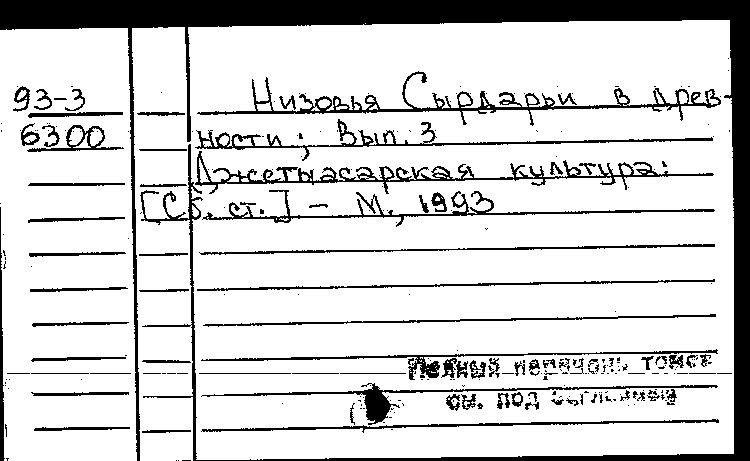 93-3 Низовья Сырдарьи в древ-
6300 ности; Вып. 3
Джетыасарская культура:
[Сб. ст.] - М., 1993
Полный перечень томов
см. под